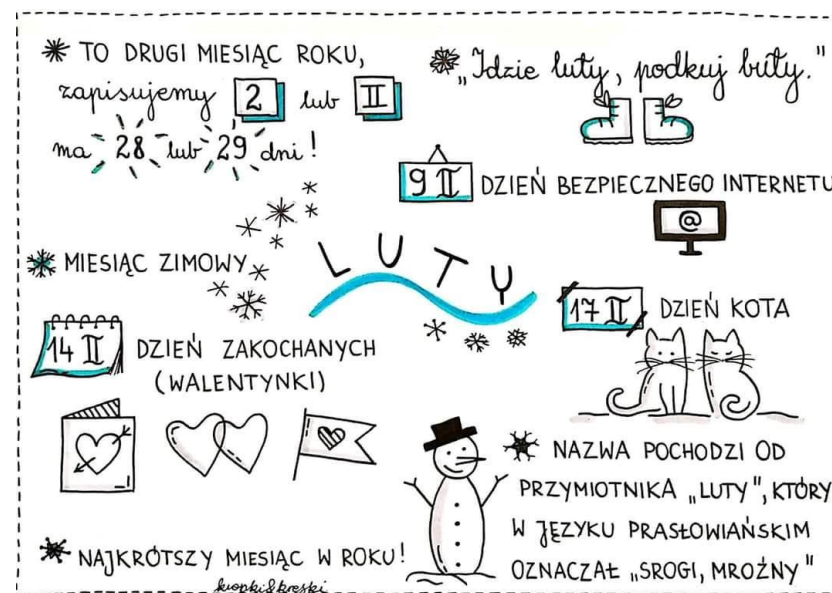 TO DRUGI MIESIĄC ROKU,
zapisujemy 2 lub II
ma 28 lub 29 dni!
„Idzie luty, podkuj buty."
9 II DZIEŃ BEZPIECZNEGO INTERNETU
@
MIESIĄC ZIMOWY
LUTY
17 II DZIEŃ KOTA
14 II DZIEŃ ZAKOCHANYCH
(WALENTYNKI)
NAZWA POCHODZI OD
PRZYMIOTNIKA „LUTY", KTÓRY
W JĘZYKU PRASŁOWIAŃSKIM
OZNACZAŁ „SROGI, MROŹNY"
NAJKRÓTSZY MIESIĄC W ROKU!
kropki&kreski